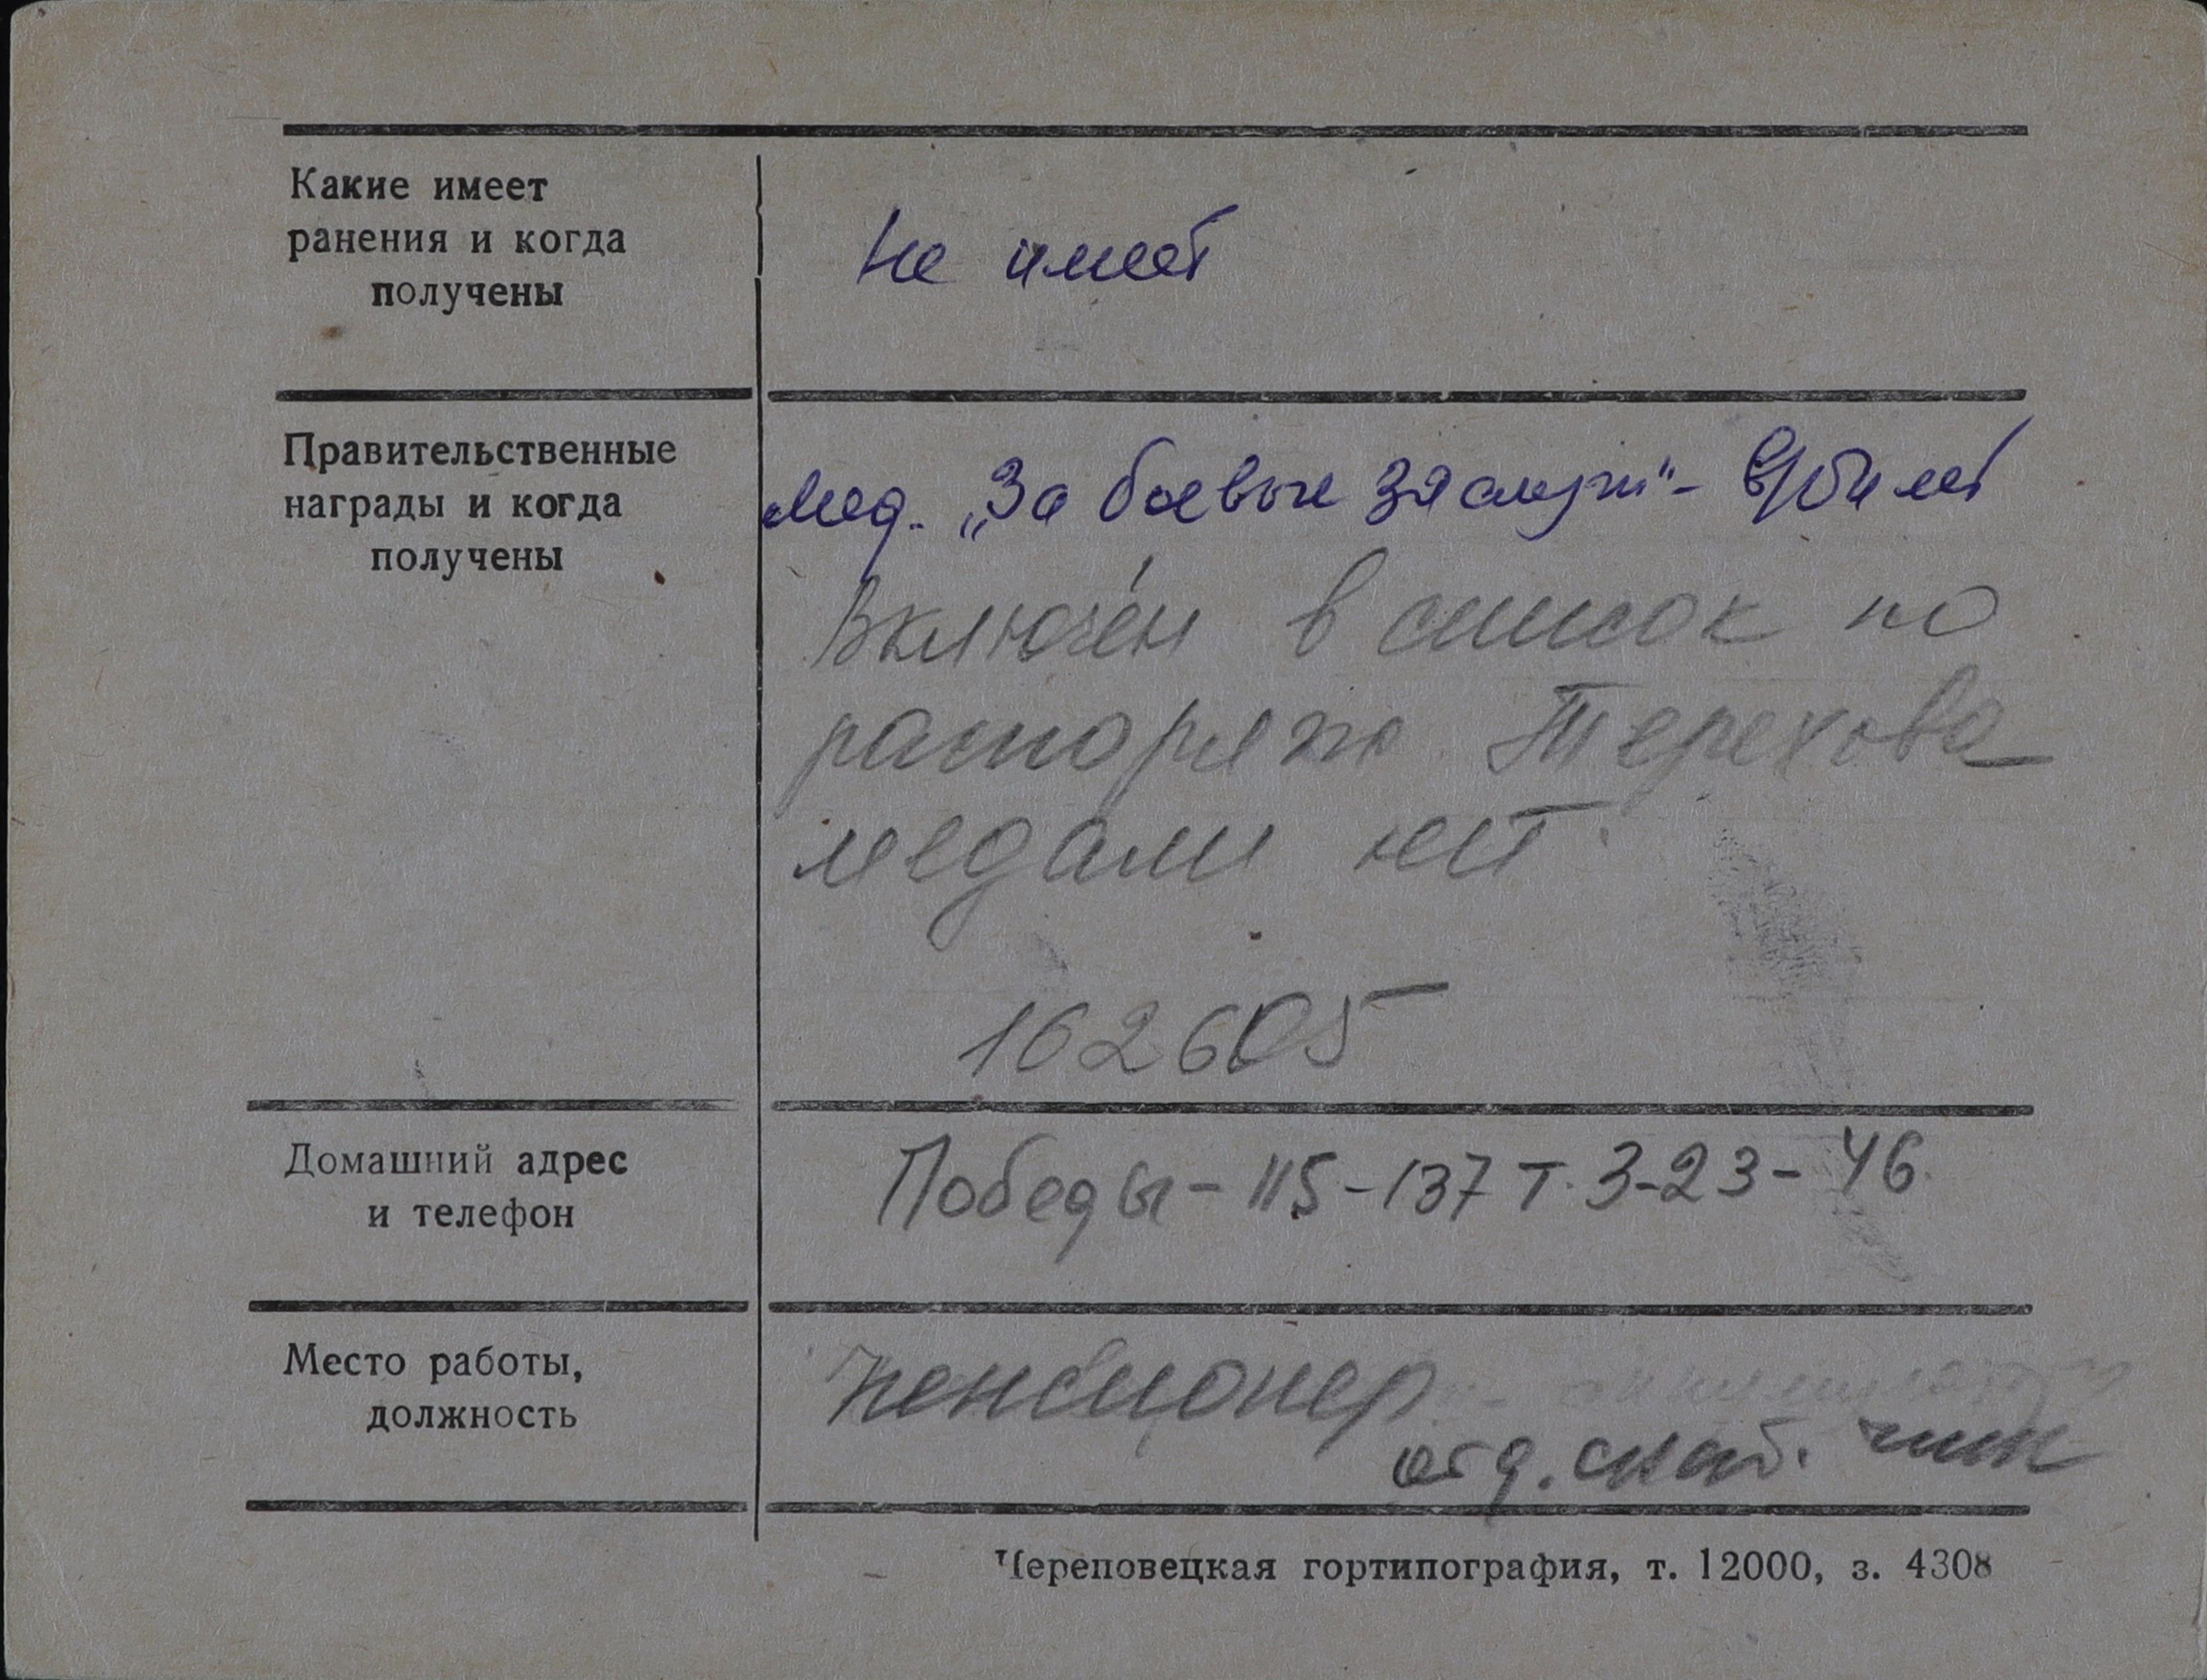 Какие имеет
ранения и когда
получены
Не имеет
Правительственные
награды и когда
получены
Мед. „За боевые заслуги"- в/билет
Включён в список по
распоряж. Терехова
медали нет
162605
Домашний адрес
и телефон
Победы - 115-137 т. 3-23-46
Место работы,
должность
пенсионер
отд. снаб.
Череповецкая гортипография, т. 12000, з. 4308